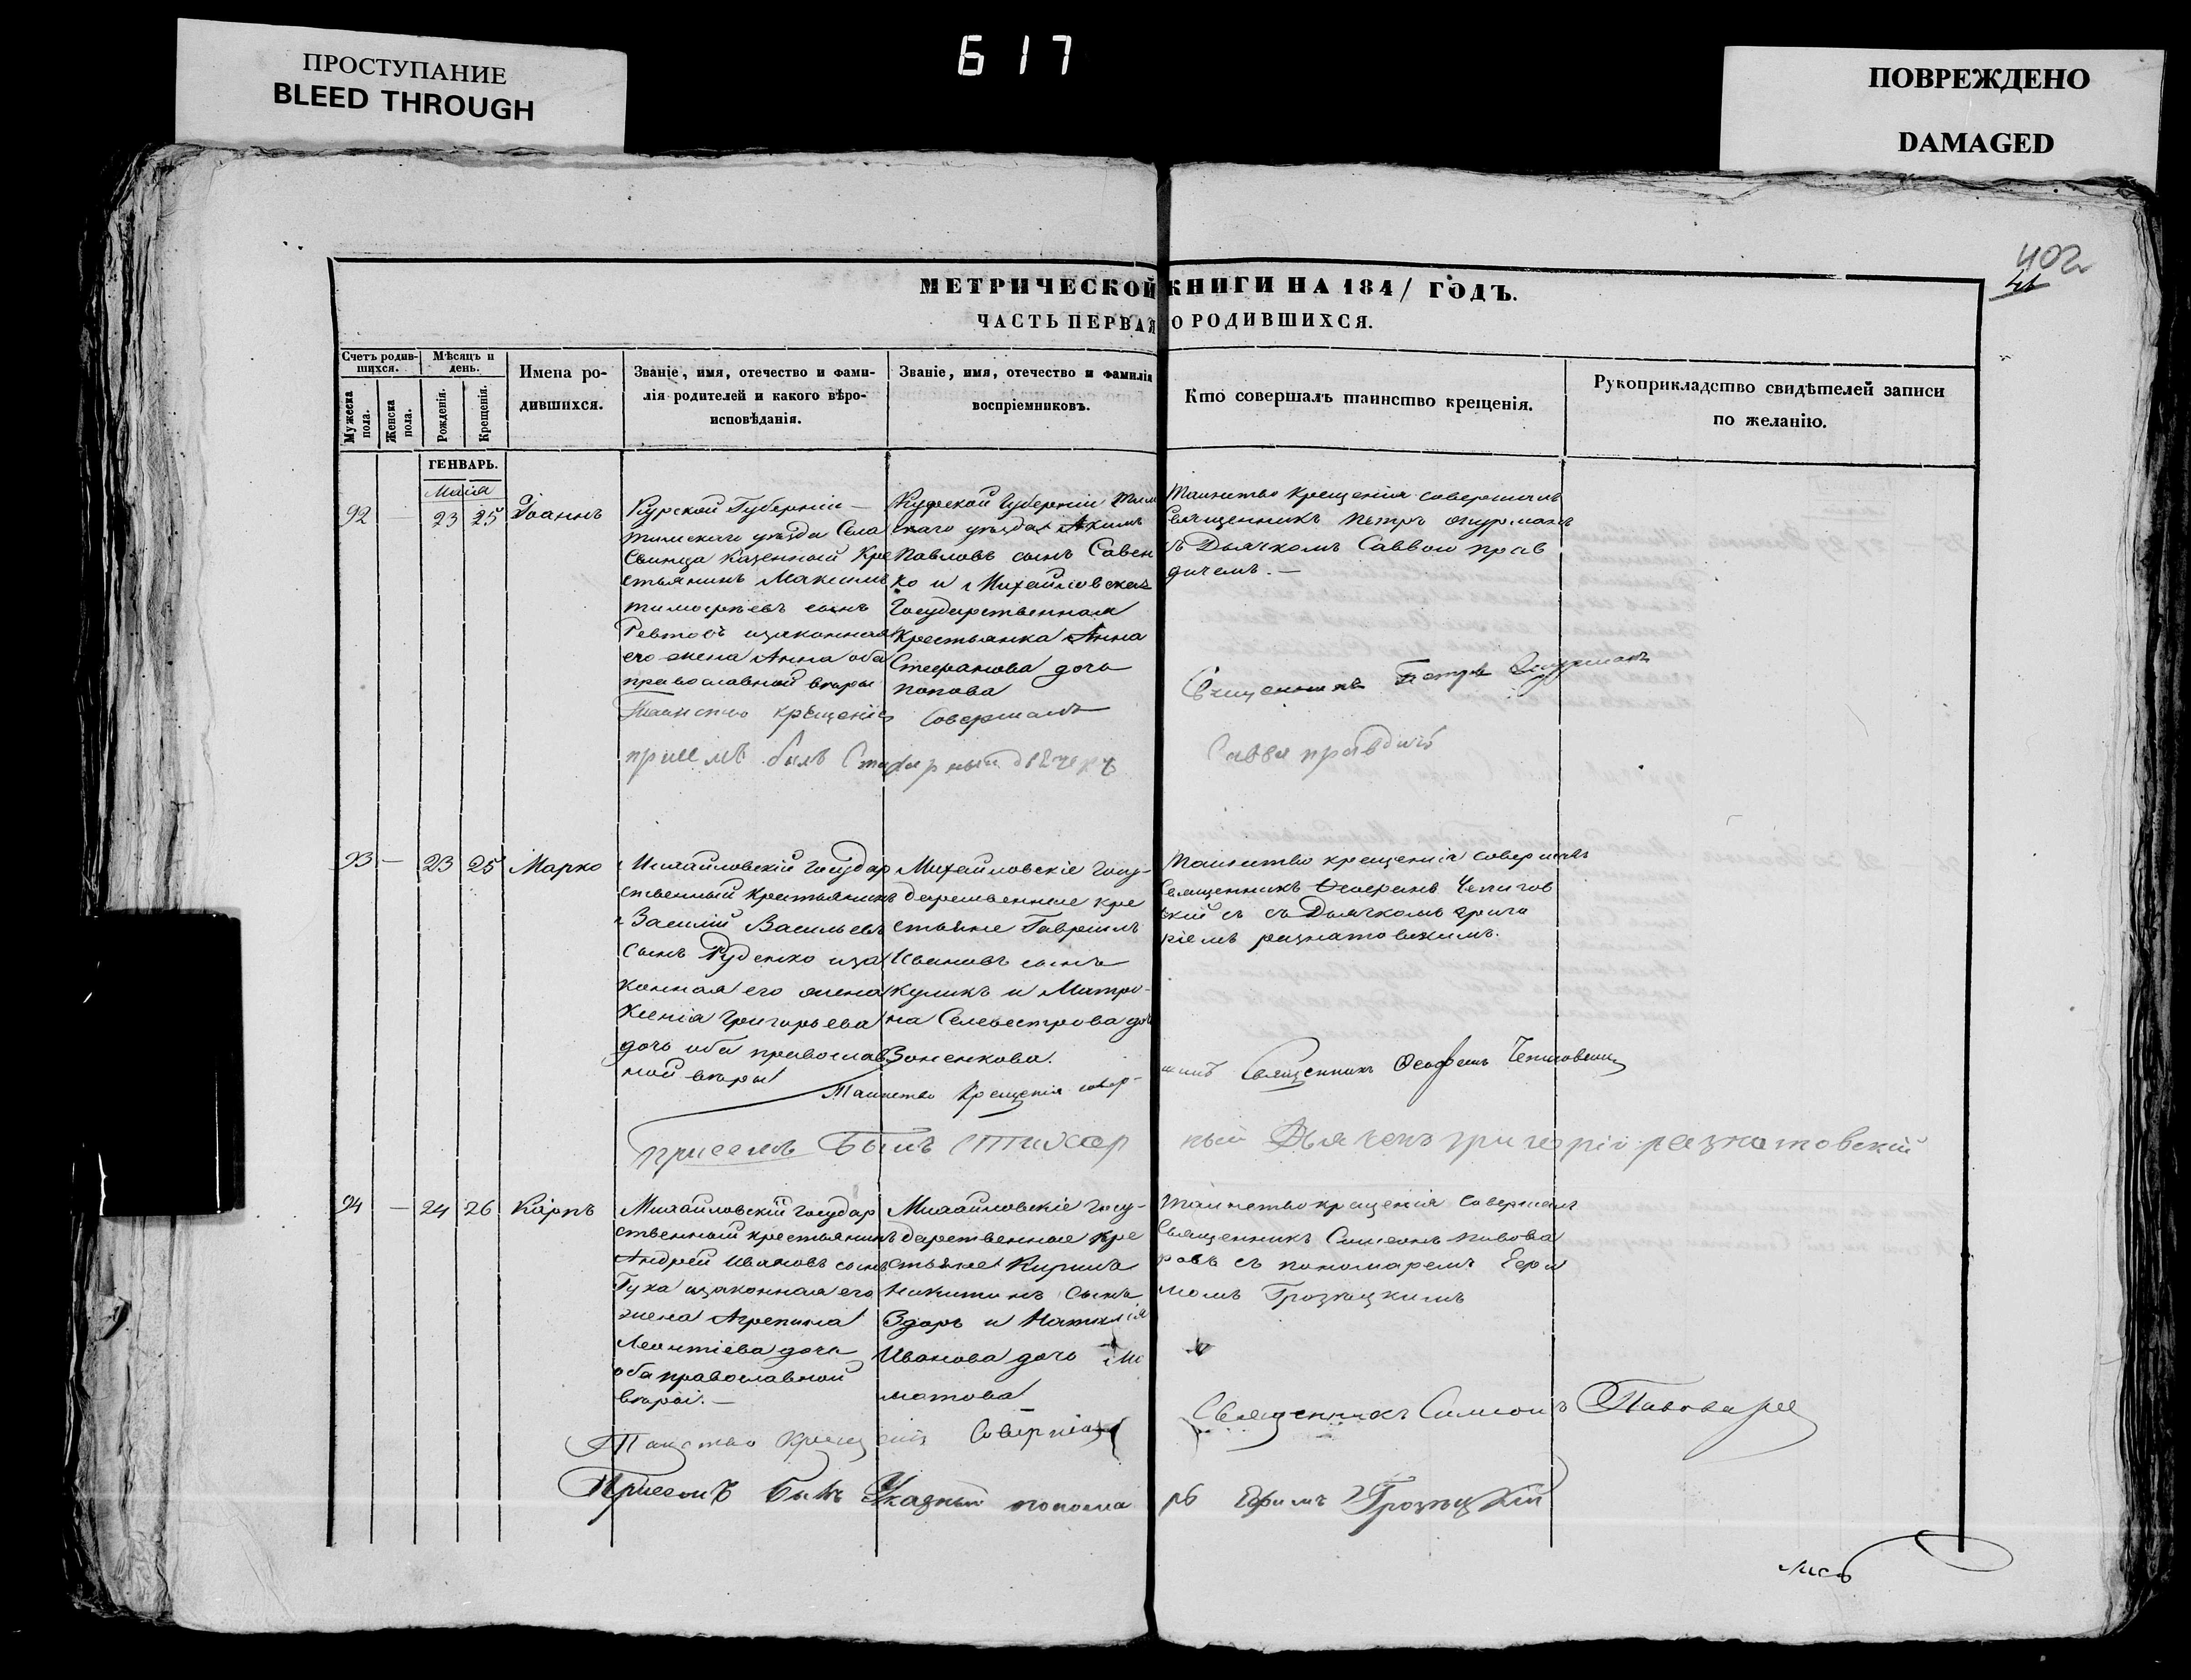 617
ПРОСТУПАНИЕ
BLEED THROUGH
ПОВРЕЖДЕНО
DAMAGED
402
МЕТРИЧЕСКОЙ КНИГИ НА 1841 ГОДЪ.
ЧАСТЬ ПЕРВАЯ О РОДИВШИХСЯ.
Счетъ родив-
шихся.
Мужеска
пола.
Женска
пола.
Мѣсяцъ и
день.
Рожденія.
Крещенія.
Имена ро-
дившихся.
Званіе, имя, отечество и фами-
лія родителей и какого вѣро-
исповѣданія.
Званіе, имя, отечество и фамилія
воспріемниковъ.
Кто совершалъ таинство крещенія.
Рукоприкладство свидѣтелей записи
по желанію.
ГЕНВАРЬ.
Маія
92
23
25
Іоаннъ
Курской Губерніи —
тимскаго уѣзда Села
Свинца казенный Кре
стьянинъ Максимъ
тимофѣевъ сынъ
Ревтовъ изаконная
его жена Анна оба
православной вѣры
Курской Губерніи Тим
скаго уѣзда Акимъ
Павловъ сынъ Савен
ко и Михайловская
Государственная
Крестьянка Анна
Стефанова дочь
попова
Таинство Крещенія совершалъ
Священникъ Петръ
съ Дьячкомъ Саввою прав
дичемъ. —
Таинство крещенія совершалъ
Священникъ Петръ
при немъ былъ Стихарный дьячекъ
Савва правдичъ
93
—
23
25
Марко
Михайловскій Государ
ственный крестьянинъ
Василій Васильевъ
сынъ Руденко иза
конная его жена
Ксенія Григорьева
дочь оба православ
ной вѣры
Михайловскіе Госу-
дарственные кре
стьяне Гавріилъ
Ивановъ сынъ
куликъ и Матро-
на Селевестрова доч
Зоненкова.
Таинство крещенія совершалъ
Священникъ Ѳеофанъ Чепигов
скій съ съ Дьячкомъ Григо
ріемъ разнатовскимъ.
Таинство Крещенія совер-
шилъ Священникъ Ѳеофанъ Чепиговскій
при семъ Былъ стихар
ный Дьяченъ григорій разнатовскій
94
—
24
26
Карпъ
Михайловскій Государ
ственный крестьянинъ
Андрей Ивановъ сынъ
Гука изаконная его
жена Агрепина
Леонтіева дочь
оба православной
вѣры. —
Михайловскіе Госу-
дарственные Кре
стьяне Кирила
Никитинъ сынъ
Здоръ и Наталія
Иванова дочь
матова
Таинство крещенія совершалъ
Священникъ Симеонъ пивова
ровъ съ пономаремъ Ефи
момъ Грозицкимъ
Таинство Крещенія Совершалъ
Священникъ Симеонъ Пивоваровъ
При семъ былъ Указный понома
рь Ефимъ Грозицкій